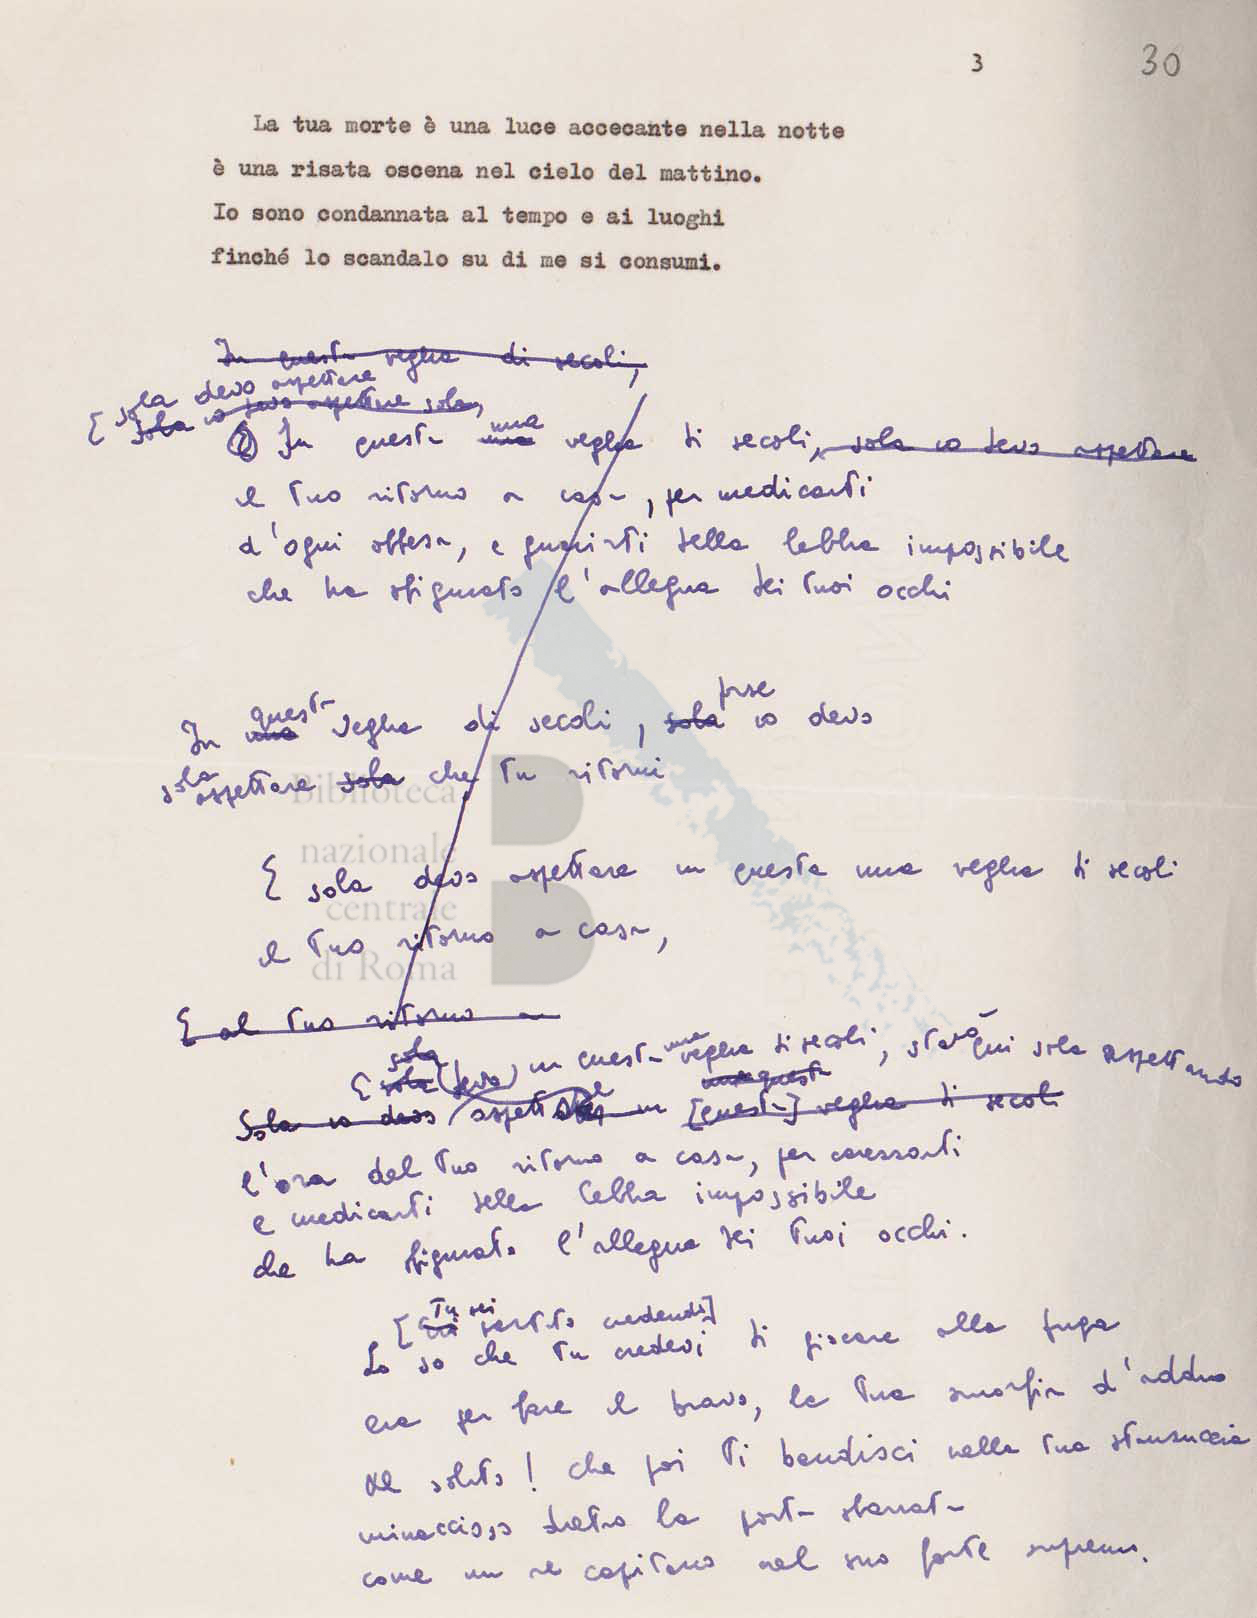 3 30
La tua morte è una luce accecante nella notte
è una risata oscena nel cielo del mattino.
Io sono condannata al tempo e ai luoghi
finché lo scandalo su di me si consumi.
In questa veglia di secoli,
E sola devo aspettare
sola io devo aspettare sola,
In questa una veglia di secoli, sola io devo aspettare
il tuo ritorno a casa, per medicarti
d'ogni offesa, e guarirti della lebbra impossibile
che ha sfigurato l'allegria dei tuoi occhi
In una questa veglia di secoli, sola forse io devo
sola aspettare sola che tu ritorni
Biblioteca
nazionale
centrale
di Roma
E sola devo aspettare in questa una veglia di secoli
il tuo ritorno a casa,
E al tuo ritorno a
sola
E sola (devo) in questa una veglia di secoli, starò qui sola aspettando
una questa
Sola io devo aspettare in [questa] veglia di secoli
l'ora del tuo ritorno a casa, per caressarti
e medicarti della lebbra impossibile
che ha sfigurato l'allegria dei tuoi occhi.
[Tu sei partito credendo]
Lo so che tu credevi di giocare alla fuga
era per fare il bravo, la tua smorfia d'addio
al solito! che poi ti bandisci nella tua stanzuccia
minaccioso dietro la porta sbarrata
come un re capitano nel suo forte supremo.